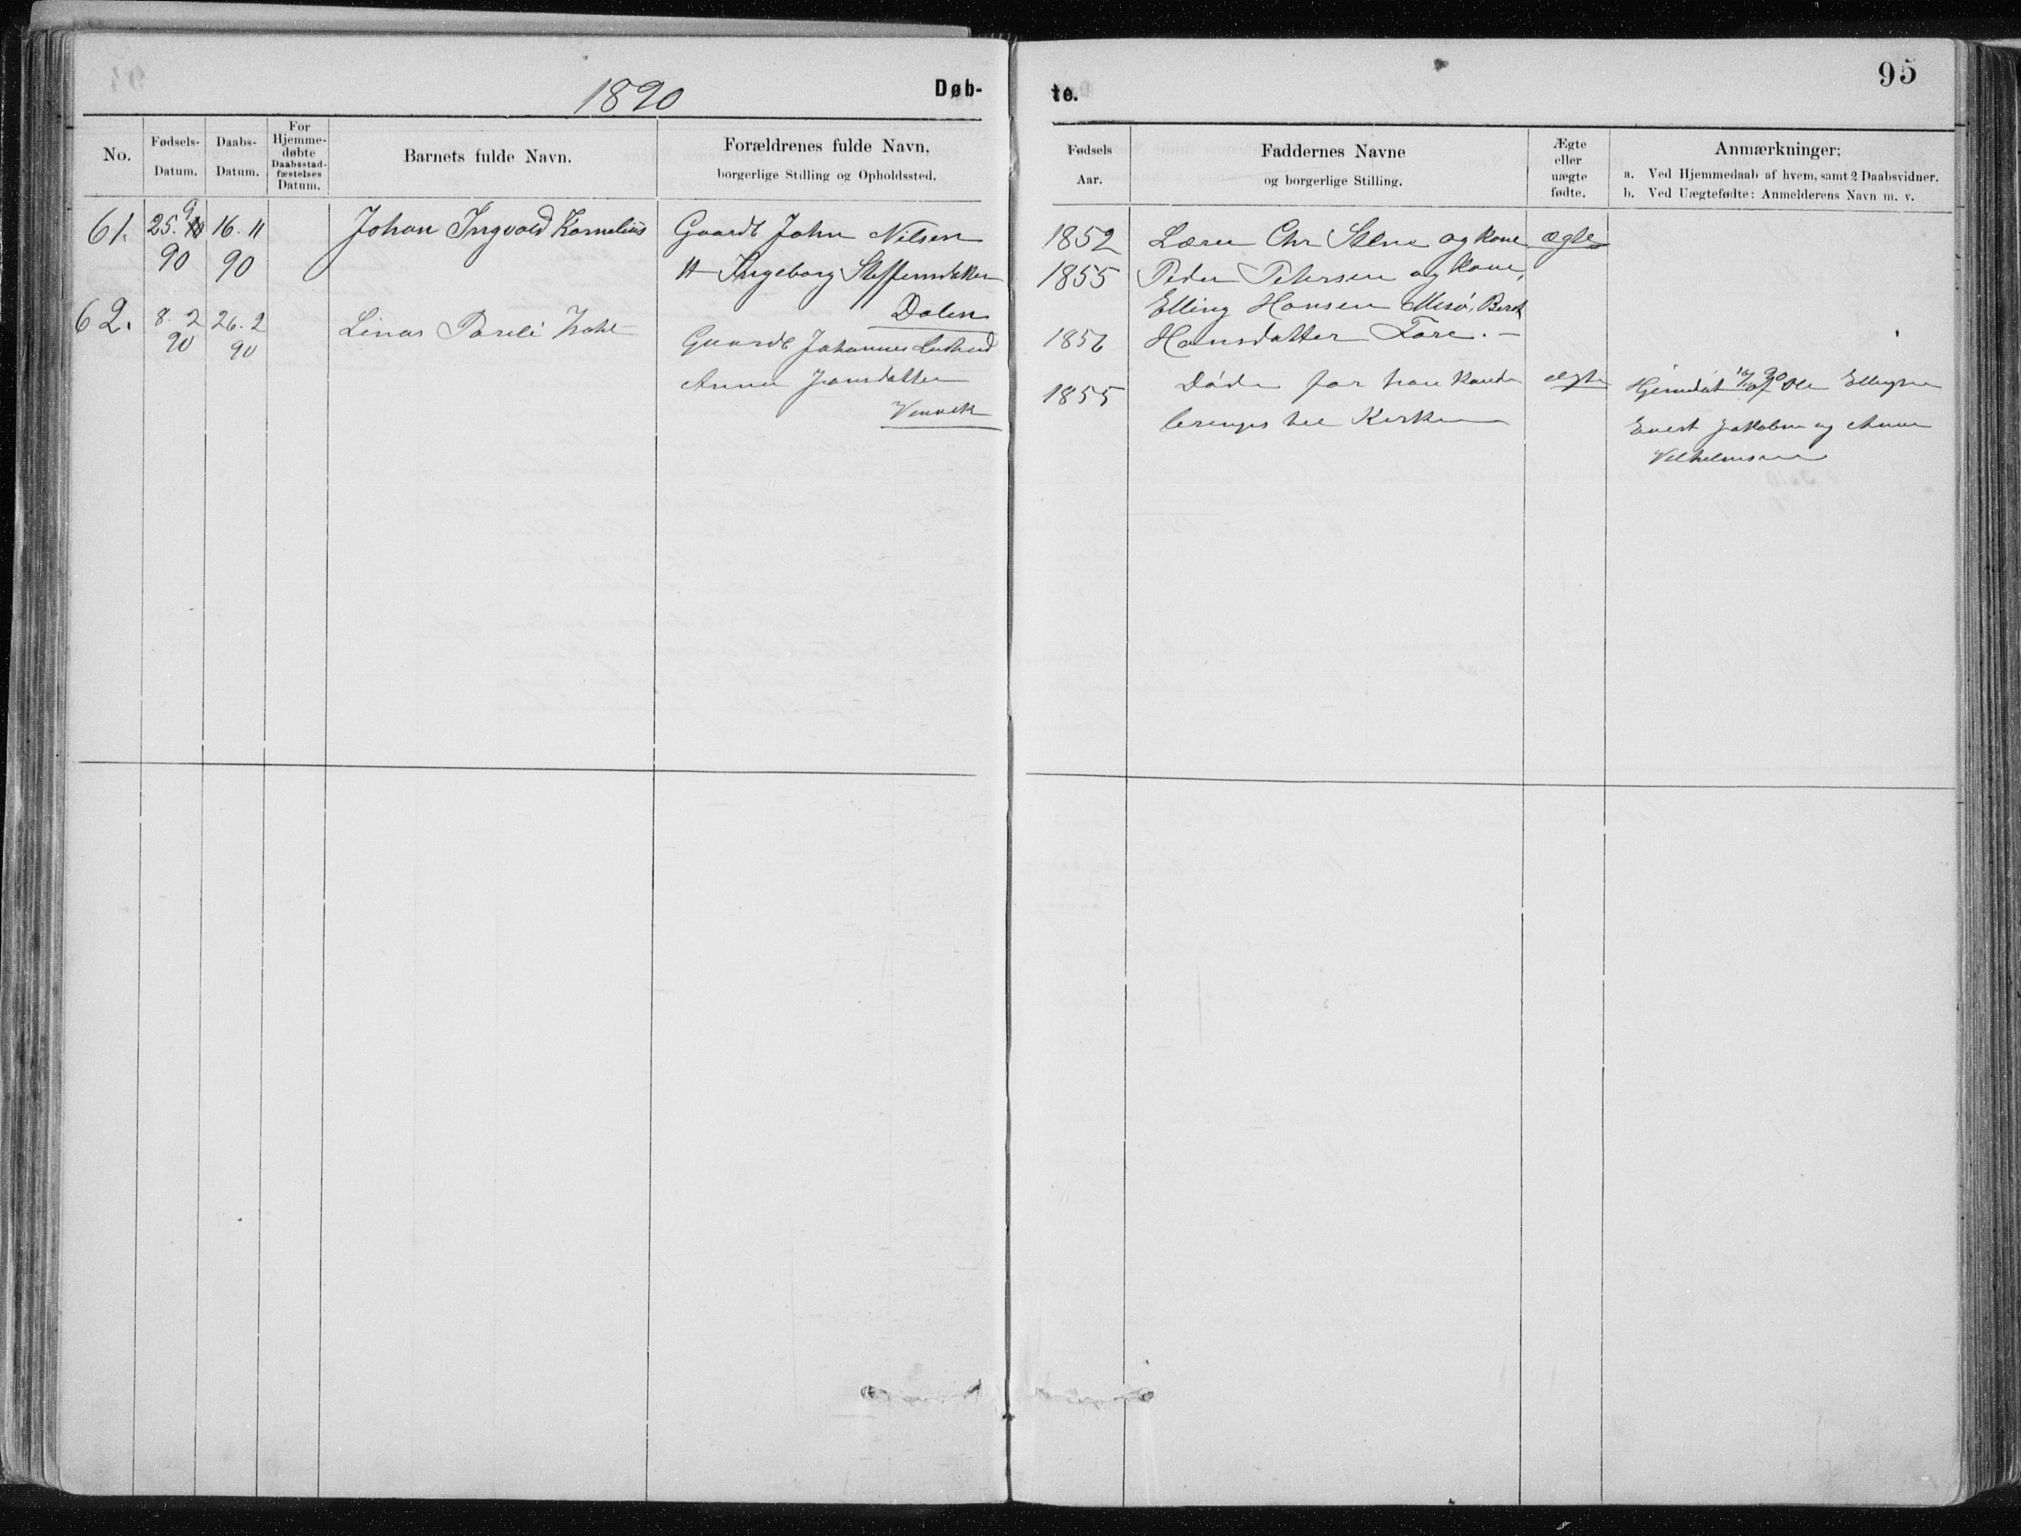 95
1890
Døb-
te.
No.
Fødsels-
Datum.
Daabs-
Datum.
For
Hjemme-
døbte
Daabsstad-
fæstelses
Datum.
Barnets fulde Navn.
Forældrenes fulde Navn,
borgerlige Stilling og Opholdssted.
Fødsels
Aar.
Faddernes Navne
og borgerlige Stilling.
Ægte
eller
uægte
fødte.
Anmærkninger;
a. Ved Hjemmedaab af hvem, samt 2 Daabsvidner.
b. Ved Uægtefødte: Anmelderens Navn m. v.
61.
25. 9
90
16. 11
90
Johan Ingvald Kornelius
Gaardb John Nilsen
H Ingeborg Steffensdatter
Dalen
1852
1855
Lærer Chr Stene og kone
Peder Petersen og kone,
Elling Hansen Mesø, Berit
Hansdatter Fare.
ægte
62.
8. 2
90
26. 2
90
Linas
Gaardb Johannes
Anna Jonsdatter
1856
1855
Døde før han kunde
bringes til Kirken
ægte
Hjemdøbt 90 af Ole Ellingsen
Evert Jakobsen og Anna
Vilhelmsen